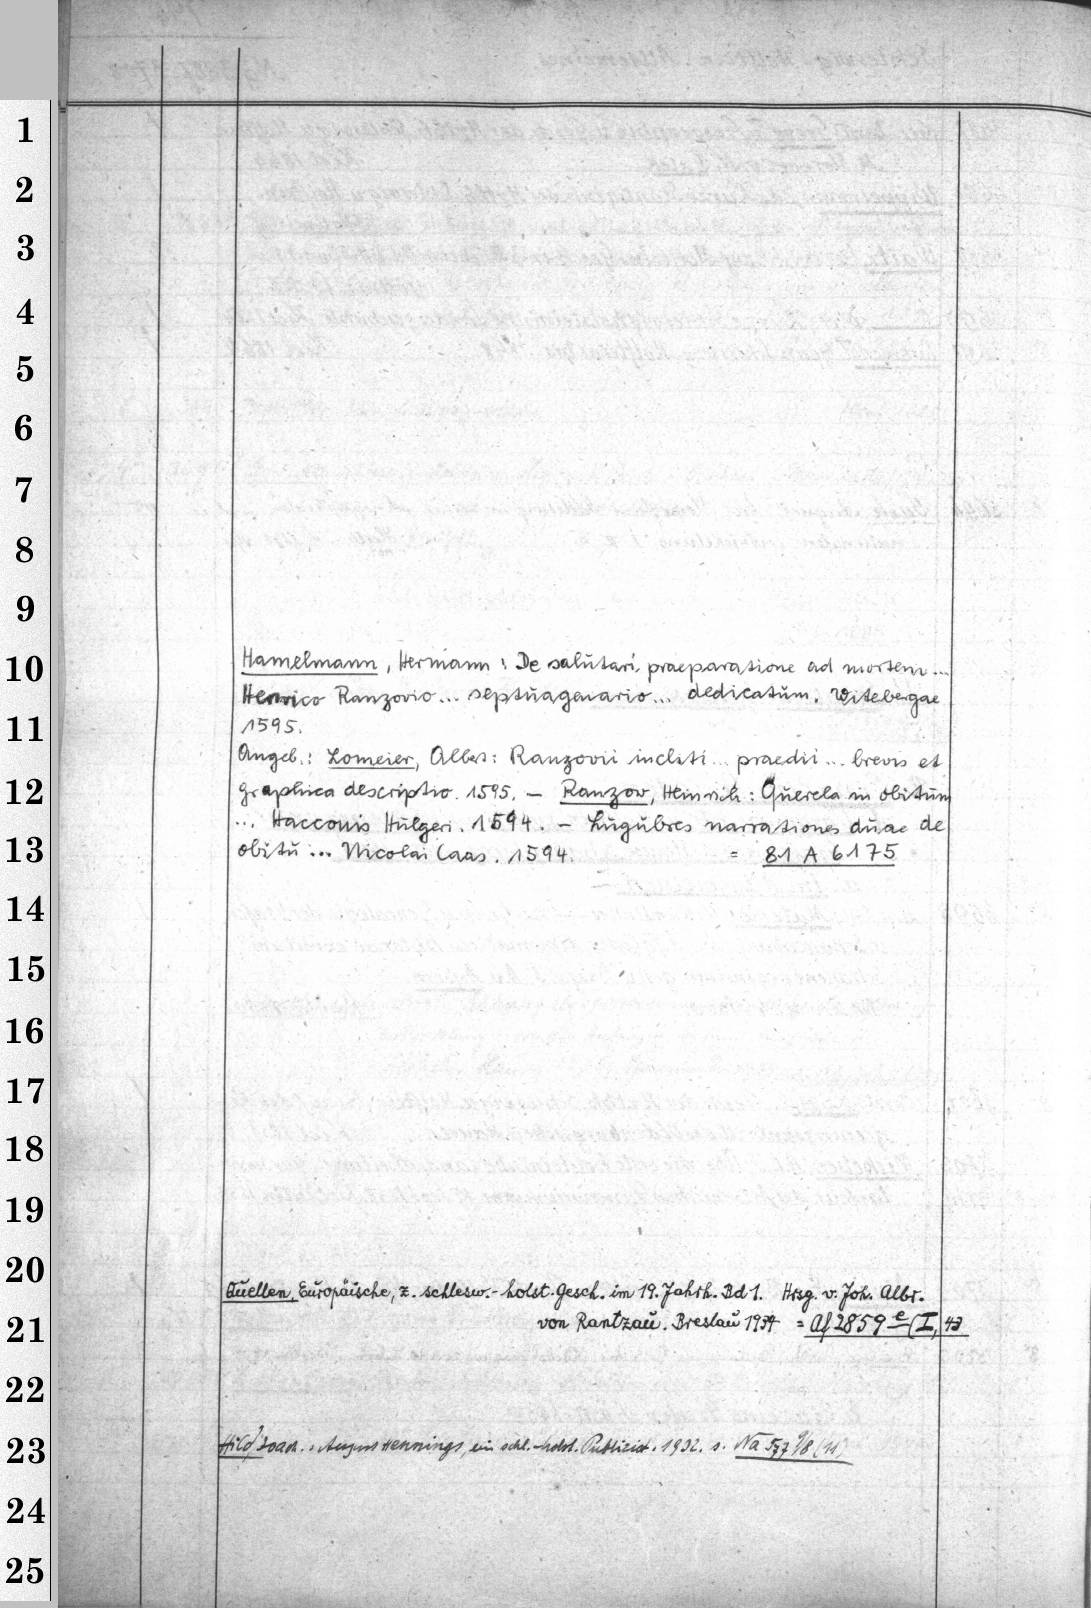 1
2
3
4
5
6
7
8
9
10
11
12
13
14
15
16
17
18
19
20
21
22
23
24
25
Hamelmann, Hermann: De salutari praeparatione ad mortem...
Henrico Ranzovio... septuagenario... dedicatum. Witebergae
1595.
Angeb.: Lomeier, Albert: Ranzovii incluti... praedii... brevis et
graphica descriptio. 1595. – Ranzov, Heinrich: Querela in obitum
... Hacconis Hulgeri. 1594. – Lugubres narrationes duae de
obitu... Nicolai Caas. 1594. = 81 A 6175
Quellen, Europäische, z. schlesw.-holst. Gesch. im 19. Jahrh. Bd 1. Hrsg. v. Joh. Albr.
von Rantzau. Breslau 1934 = Af 2859 e (I, 43
Hild, Joach.: August Hennings, ein schl.-holst. Publicist. 1932. s. Na 577 (11)